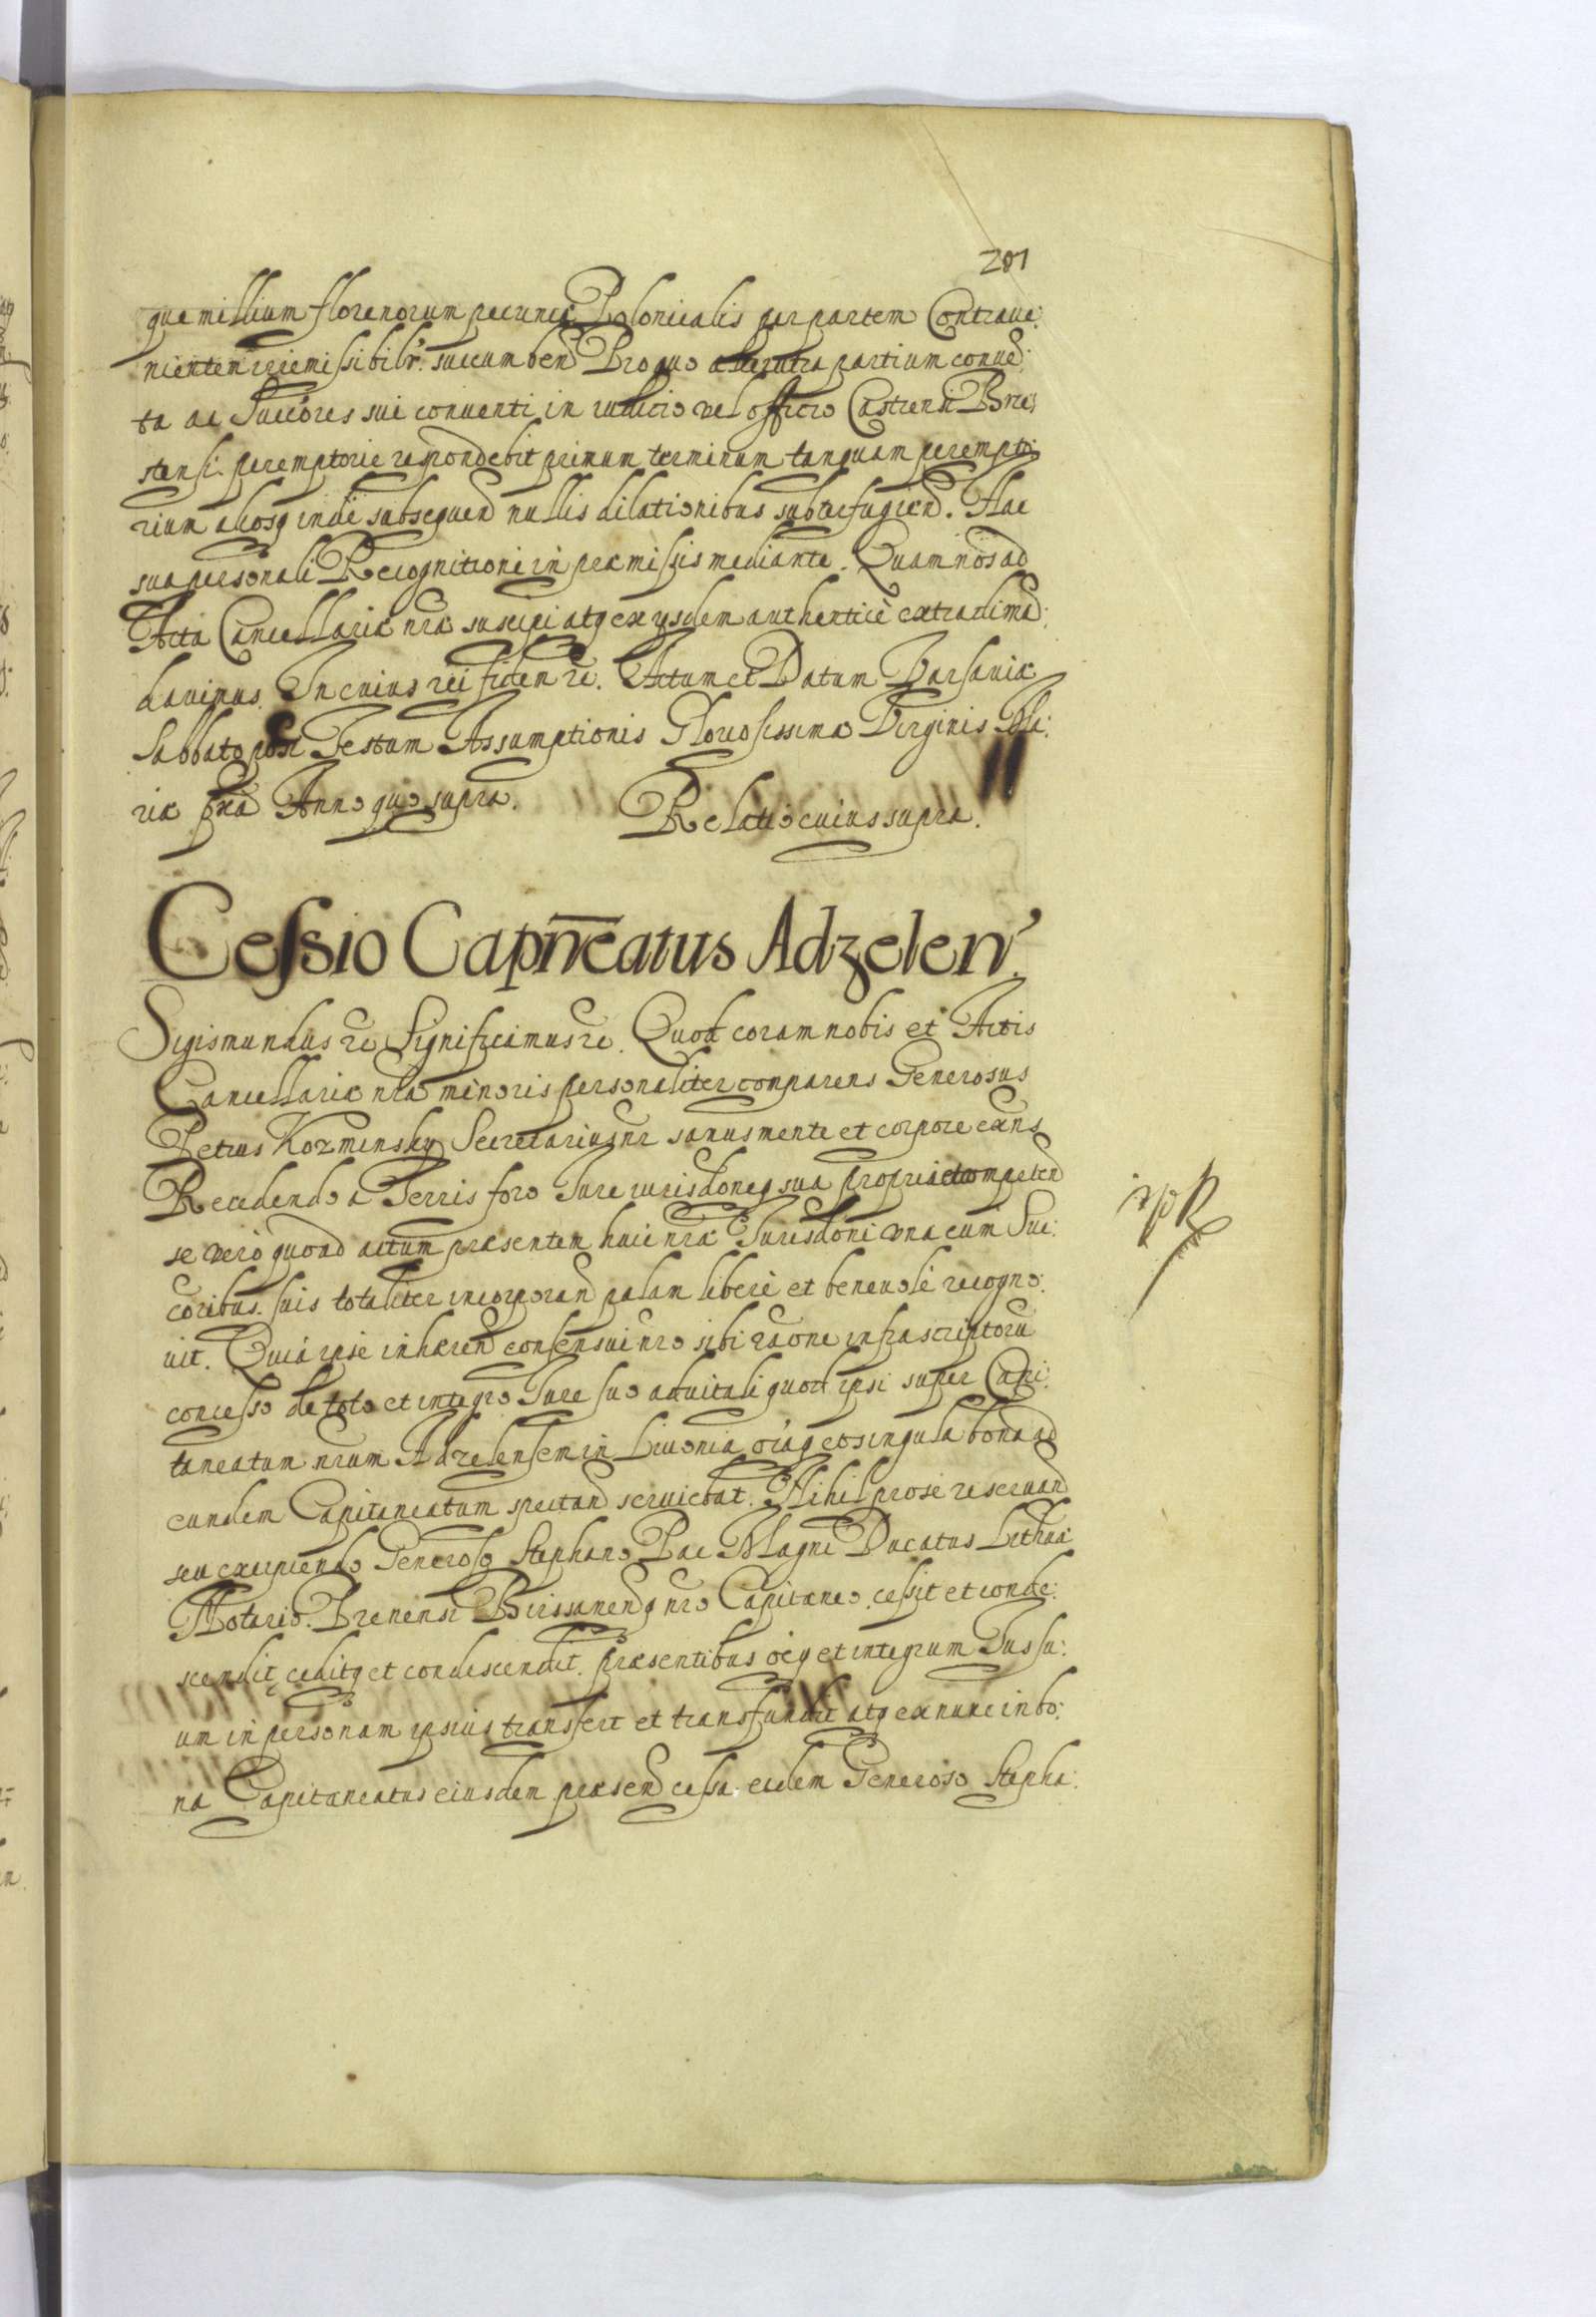 201
que millium florenorum pecuniæ Polonicalis per partem Contraue:
nientem irremissibilr. succumben Pro quo alterutra partium conuen:
ta ac Succores sui conuenti in iudicio vel officio Castrensi Bres:
stensi peremptorie respondebit primum terminum tanquam perempto:
rium aliosq inde subsequen nullis dilationibus subterfugien. Hac
sua personali Recognitione in præmissis mediante. Quam nos ad
Acta Cancellariæ nræ suscipi atq ex ysdem authenticè extradi man:
dauimus. In cuius rei fidem &c. Actum et Datum Varsauiæ
Sabbato post Festum Assumptionis Gloriosissimæ Virginis Ma:
riæ Anno quo supra. Relatio cuius supra.
Cessio Capnēatus Adzelen.
Sigismundus &c Significamus &c. Quod coram nobis et Actis
Cancellariæ nræ minoris personaliter comparens Generosus
Petrus Kozminsky Secretarius nr sanus mente et corpore exns
Recedendo a Terris foro Iure iurisdoneq sua propria competen
se vero quoad actum præsentem huic nræ Iurisdoni vna cum Suc:
coribus suis totaliter incorporan palam liberè et beneuolè recogno:
uit. Quia ipse inhæren consensui nro sibi raone infrascriptoru
concesso de toto et integro Iure suo aduitali quod ipsi super Capi:
taneatum nrum Adzelensem in Liuonia oiaq et singula bona ad
eundem Capitaneatum spectan seruiebat. Nihil pro se reseruan
seu excipiendo Generoso Stephano Pac Magni Ducatus Lithuæ
Notario. Prenensi Birssanenq nro Capitaneo. cessit et conde:
scendit, ceditq et condescendit. præsentibus oeq et integrum Ius su:
um in personam ipsius transfert et transfundit atq ex nunc in bo:
na Capitaneatus eiusdem præsen cessa. eidem Generoso Stepha: